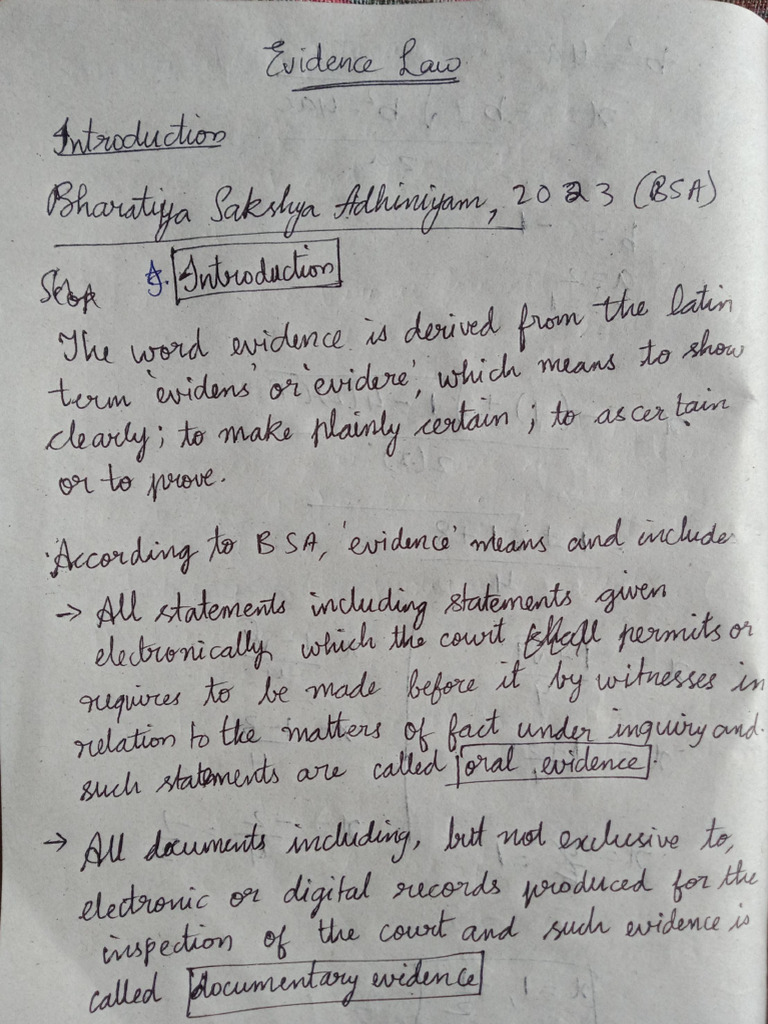 Evidence Law
Introduction
Bharatiya Sakshya Adhiniyam, 2023 (BSA)
Introduction
The word evidence is derived from the latin
term 'evidens' or 'evidere', which means to show
clearly; to make plainly certain; to ascertain
or to prove.
According to BSA, 'evidence' means and include
→ All statements including statements given
electronically which the court shall permits or
requires to be made before it by witnesses in
relation to the matters of fact under inquiry and
such statements are called oral evidence.
→ All documents including, but not exclusive to,
electronic or digital records produced for the
inspection of the court and such evidence is
called documentary evidence